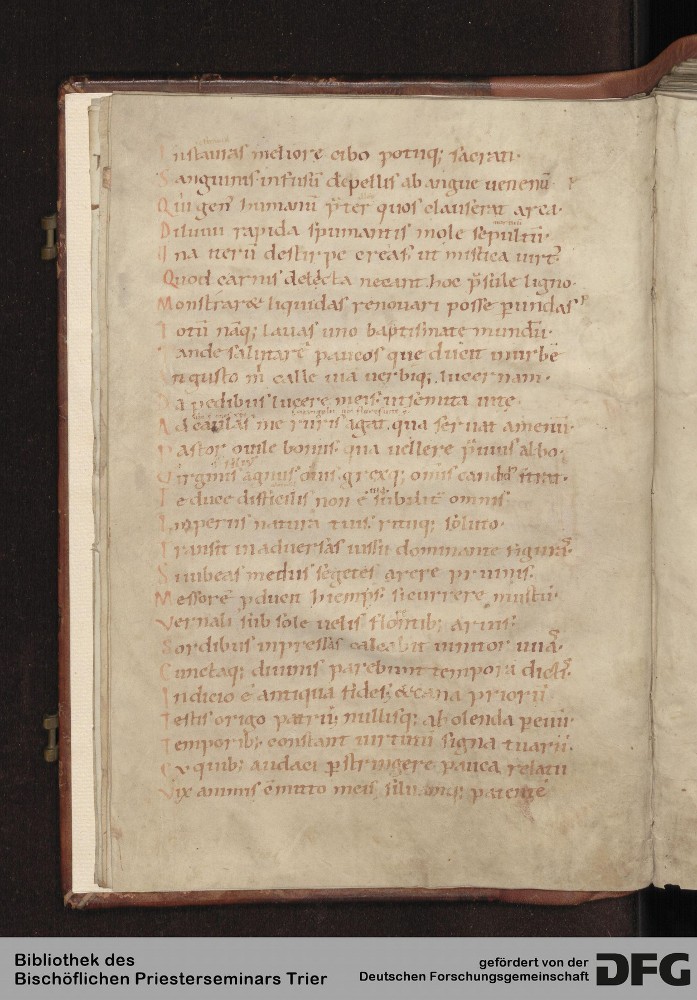 Instauras meliore cibo potuq; sacrati
Sanguinis infusū depellis ab angue uenenū
Qui genꝰ humanū p̄ter quos clauserat arca
Diluuii rapida spumantis mole sepultū
Una iterū de stirpe creas, ut mistica uirtꝰ
Quod carnis delecta necant. hoc p̄sule ligno
Monstraret liquidas renouari posse p̱undas
Totū nāq; lauas uno baptismate mundū
Pande salutarē paucos que ducit in urbē
Angusto mͥ calle uiā uerbiq; lucernam
Da pedibus lucere meis. ut semita uite
Ad caulas me ruris agat. qua seruat amenū
Pastor ouile bonus. qua uellere p̄uius albo
Virginis agnus ouis grexq; om̄is candidꝰ intrat
Te duce difficilis non ē uia. subditͬ omnis
Imperiis natura tuis. rituq; soluto
Transit in aduersas iussu dominante figuras
Si iubeas mediis segetes arere pruinis
Messorē p̱ducit hiemps. si currere mustū
Vernali sub sole uelis. florentib; aruis
Sordidus inpressas calcabit uinitor uuas
Cunctaq; diuinis parebunt tempora dictis
Indicio ē antiqua fides. & cana priorū
Testis origo patrū. nullisq; abolenda p̱ eum
Temporib; constant uirtutū signa tuarū
Ex quib; audaci p̱stringere pauca relatu
Vix animis ēmitto meis. siluāq; patentē
Bibliothek des
Bischöflichen Priesterseminars Trier
gefördert von der
Deutschen Forschungsgemeinschaft
DFG